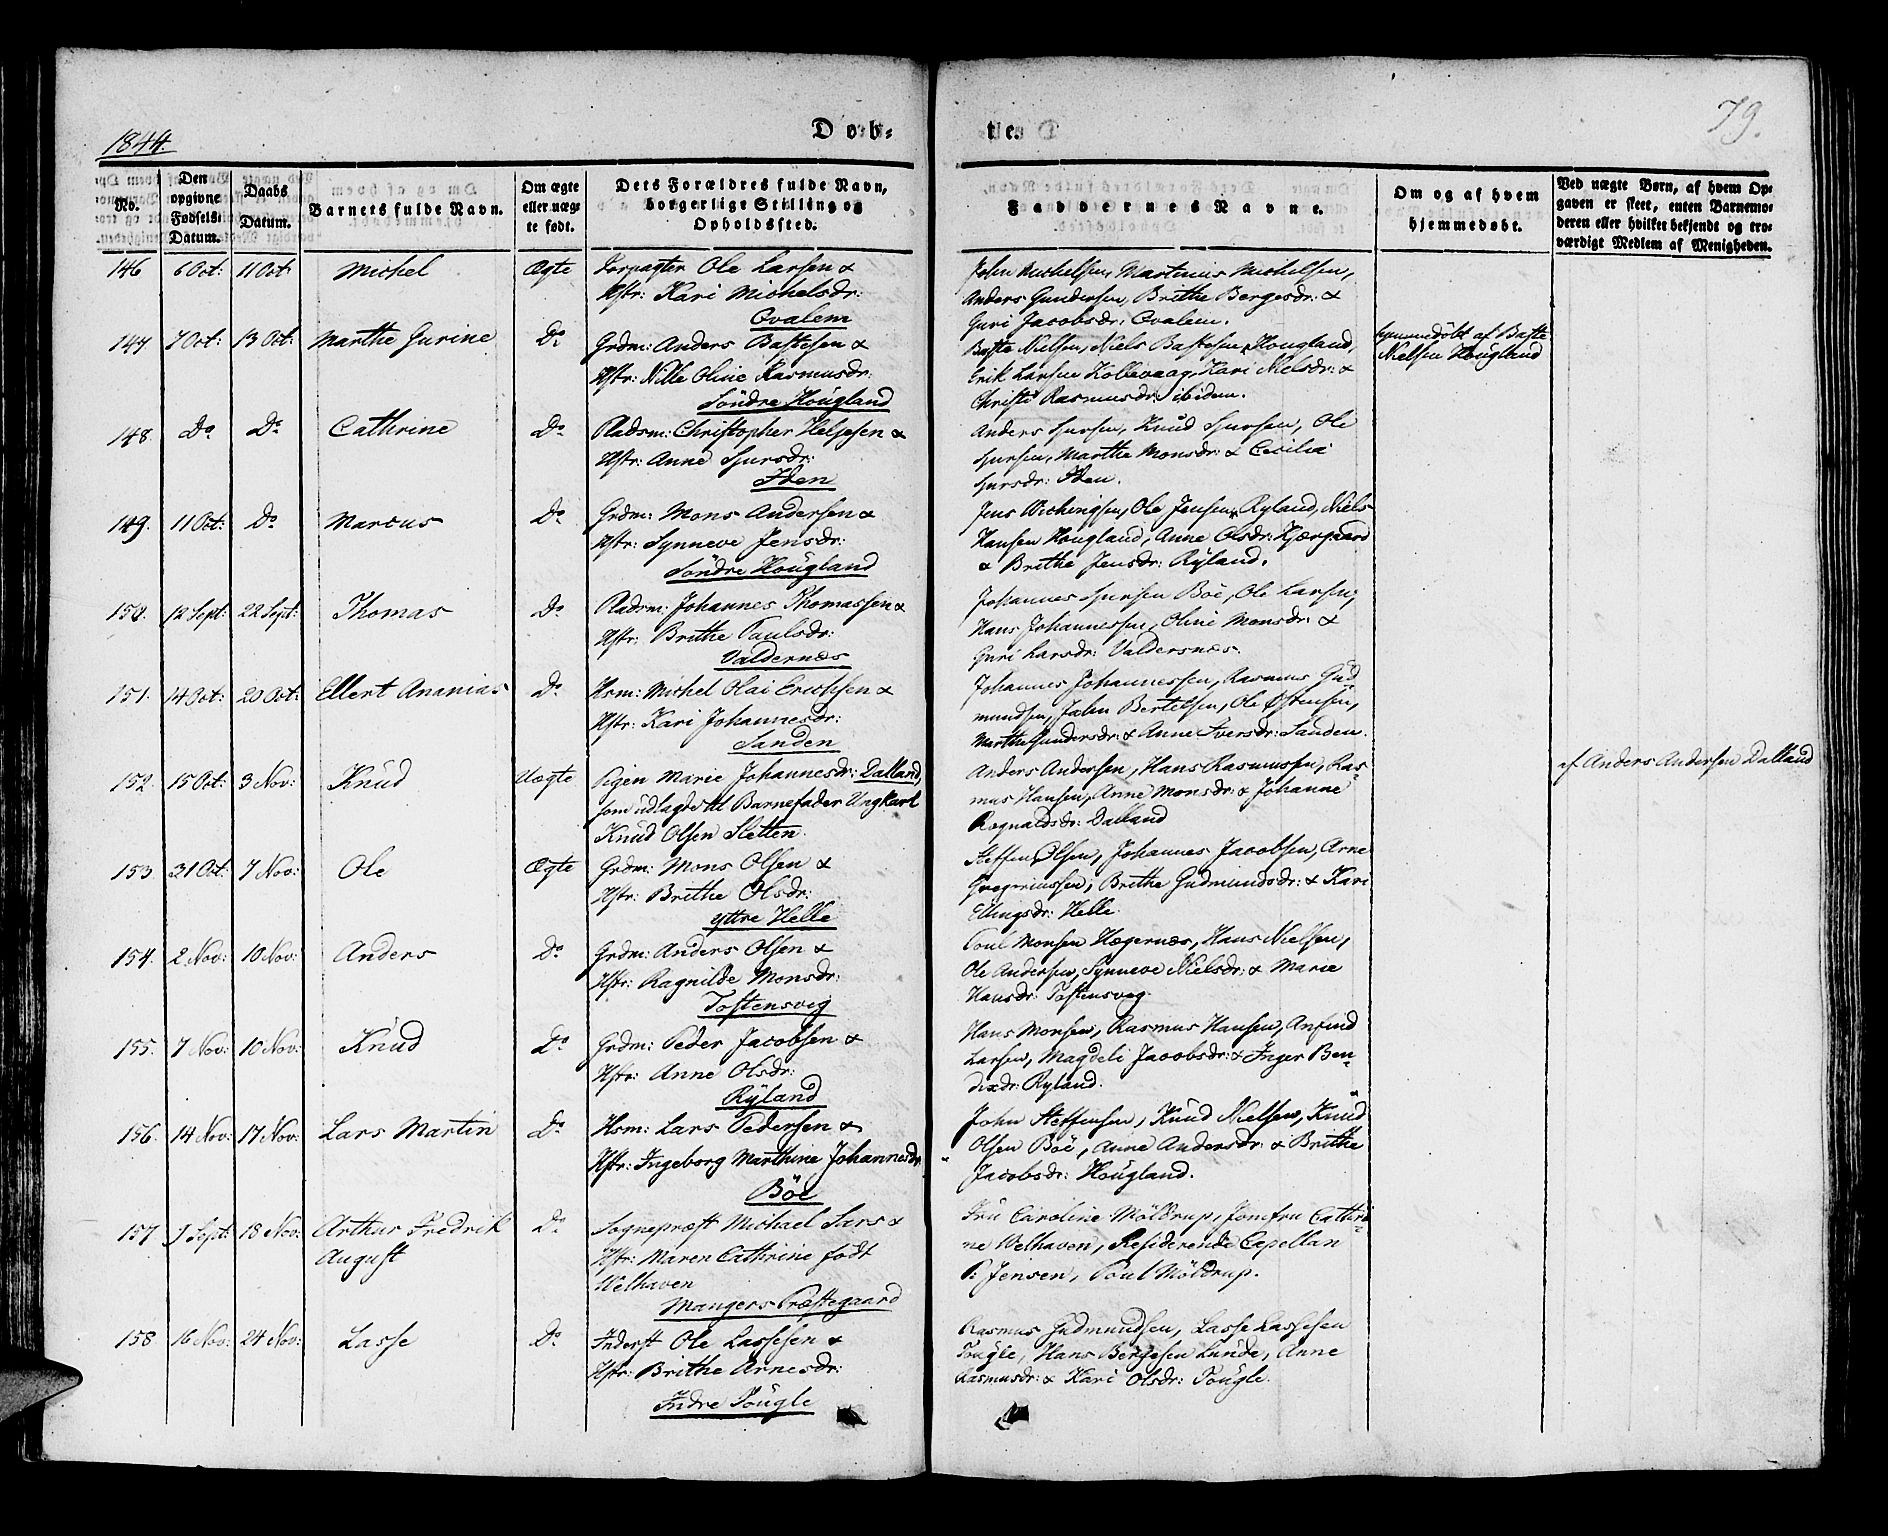 1844.
Døb-
te.
79.
No.
Den
opgivne
Fødsels-
Datum.
Daabs
Datum.
Barnets fulde Navn.
Om ægte
eller uæg-
te født.
Dets Forældres fulde Navn,
borgerlige Stilling og
Opholdssted.
Faddernes Navne.
Om og af hvem
hjemmedøbt.
Ved uægte Børn, af hvem Op-
gaven er skeet, enten Barnemo-
deren eller hvilket bekjendt og tro-
værdigt Medlem af Menigheden.
146 6 Oct: 11 Oct: Michel Ægte Forpagter Ole Larsen &
Hstr: Kari Michelsdr:
Qvalem
John Michelsen, Martinus Michelsen,
Anders Gundersen, Brithe Bergesdr: &
Guri Jacobsdr: Qvalem.
147 7 Oct: 13 Oct: Marthe Gurine Do Grdm: Anders Bastesen &
Hstr: Nille Oline Rasmusdr:
Söndre Hougland
Baste Nielsen, Niels Bastesen, Hougland,
Erik Larsen Kollevaag, Kari Nielsdr: &
Christi Rasmusdr: ibidem.
hjemmedöbt af Baste
Nielsen Hougland
148. Do Do Cathrine Do Pladsm: Christopher Heljesen &
Hstr: Anne Sjursdr:
Iden
Anders Sjursen, Knud Sjursen, Ole
Sjursen, Marthe Monsdr: & Cecilia
Sjursdr: Iden.
149. 11 Oct: Do Marcus Do Grdm: Mons Andersen &
Hstr: Synneve Jensdr:
Söndre Hougland
Jens Wichingsen, Ole Jensen, Ryland, Niels
Hansen Hougland, Anne Olsdr: Kjærgaard
& Brithe Jensdr: Ryland.
150. 12 Sept: 22 Sept: Thomas Do Pladsm: Johannes Thomassen &
Hstr: Brithe Paulsdr:
Valdernæs
Johannes Sjursen Böe, Ole Larsen,
Hans Johannessen, Oline Monsdr: &
Guri Larsdr: Valdersnæs.
151. 14 Oct: 20 Oct: Ellert Ananias Do Hsm: Michel Olai Erichsen &
Hstr: Kari Johannesdr:
Sanden
Johannes Johannessen, Rasmus Gud-
mundsen, John Bertelsen, Ole Østensen,
Marthe Gundersdr: & Anne Iversdr: Sanden.
152. 15 Oct: 3 Nov: Knud Uægte Pigen Marie Johannesdr: Dalland,
som udlagde til Barnefader Ungkarl
Knud Olsen Sletten.
Anders Andersen, Hans Rasmussen, Ras-
mus Hansen, Anne Monsdr: & Johanne
Rognaldsdr: Dalland
af Anders Andersen Dalland
153. 31 Oct: 7 Nov: Ole Ægte Grdm: Mons Olsen &
Hstr: Brithe Olsdr:
yttre Helle
Steffen Olsen, Johannes Jacobsen, Arne
Gregeriussen, Brithe Gudmundsdr: & Kari
Ellingsdr: Helle.
154. 2 Nov: 10 Nov: Anders Do Grdm: Anders Olsen &
Hstr: Ragnilde Monsdr:
Tostensvig
Poul Monsen Hegernæs, Hans Nielsen,
Ole Andersen, Synneve Nielsdr: & Marie
Hansdr: Tostensvig.
155. 7 Nov: 10 Nov: Knud Do Grdm: Peder Jacobsen &
Hstr: Anne Olsdr:
Ryland
Hans Monsen, Rasmus Hansen, Anfind
Larsen, Magdeli Jacobsdr: & Inger Ben-
dixdr: Ryland.
156. 14 Nov: 17 Nov: Lars Martin Do Hsm: Lars Pedersen &
Hstr: Ingeborg Marthine Johannesdr
Böe
John Steffensen, Knud Nielsen, Knud
Olsen Böe, Anne Andersdr: & Brithe
Jacobsdr: Hougland.
157 Sept: 18 Nov: Arthur Fredrik
August Do Sognepræst Michael Sars &
Hstr: Maren Cathrine født
Welhaven
Mangers Præstegaard
Fru Caroline Möldrup, Jomfru Cathri-
ne Welhaven, Residerende Capellan
P: Jensen, Poul Möldrup.
158 16 Nov: 24 Nov: Lasse Do Inderst Ole Lassesen &
Hstr: Brithe Arnesdr:
Indre Fougle
Rasmus Gudmundsen, Lasse Lassesen
Fougle, Hans Bergesen Lunde, Anne
Rasmusdr: & Kari Olsdr: Fougle.